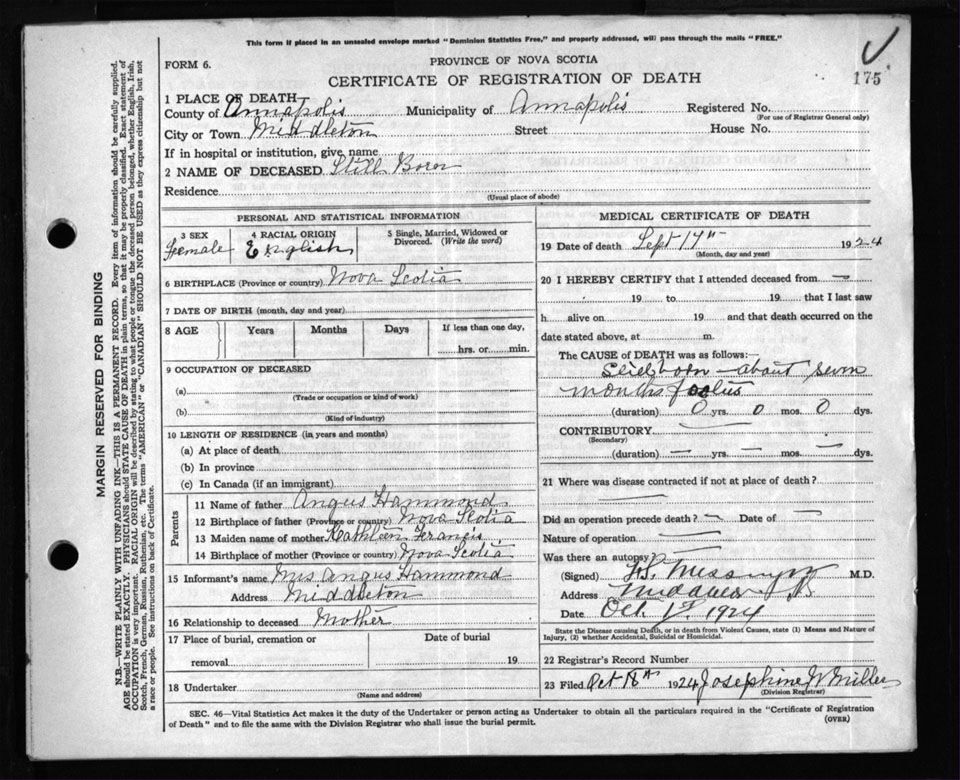 This form if placed in an unsealed envelope marked "Dominion Statistics Free," and properly addressed, will pass through the mails "FREE."
FORM 6.
PROVINCE OF NOVA SCOTIA
CERTIFICATE OF REGISTRATION OF DEATH
175
1 PLACE OF DEATH—
County of Annapolis Municipality of Annapolis Registered No.
(For use of Registrar General only)
City or Town Middleton Street House No.
If in hospital or institution, give name
2 NAME OF DECEASED Still Born
Residence
(Usual place of abode)
PERSONAL AND STATISTICAL INFORMATION
3 SEX 4 RACIAL ORIGIN 5 Single, Married, Widowed or Divorced. (Write the word)
Female English
6 BIRTHPLACE (Province or country) Nova Scotia
7 DATE OF BIRTH (month, day and year)
8 AGE Years Months Days If less than one day,
hrs. or min.
9 OCCUPATION OF DECEASED
(a)
(Trade or occupation or kind of work)
(b)
(Kind of industry)
10 LENGTH OF RESIDENCE (in years and months)
(a) At place of death
(b) In province
(c) In Canada (if an immigrant)
Parents
11 Name of father Angus Hammond
12 Birthplace of father (Province or country) Nova Scotia
13 Maiden name of mother Kathleen Francis
14 Birthplace of mother (Province or country) Nova Scotia
15 Informant's name Mrs Angus Hammond
Address Middleton
16 Relationship to deceased Mother
17 Place of burial, cremation or Date of burial
removal 19
18 Undertaker
(Name and address)
MEDICAL CERTIFICATE OF DEATH
19 Date of death Sept 17th 1924
(Month, day and year)
20 I HEREBY CERTIFY that I attended deceased from —
19 to 19 that I last saw
h alive on 19 and that death occurred on the
date stated above, at m.
The CAUSE of DEATH was as follows:—
Stillborn — about seven
months foetus
(duration) 0 yrs. 0 mos. 0 dys.
CONTRIBUTORY —
(Secondary)
(duration) — yrs. — mos. — dys.
21 Where was disease contracted if not at place of death?
—
Did an operation precede death? — Date of —
Nature of operation —
Was there an autopsy?
(Signed) M.D.
Address Middleton
Date Oct 1st 1924
State the Disease causing Death, or in death from Violent Causes, state (1) Means and Nature of
Injury, (2) whether Accidental, Suicidal or Homicidal.
22 Registrar's Record Number
23 Filed Oct 18th 1924 Josephine Miller
(Division Registrar)
SEC. 46—Vital Statistics Act makes it the duty of the Undertaker or person acting as Undertaker to obtain all the particulars required in the "Certificate of Registration
of Death" and to file the same with the Division Registrar who shall issue the burial permit. (OVER)
MARGIN RESERVED FOR BINDING
N.B.—WRITE PLAINLY WITH UNFADING INK—THIS IS A PERMANENT RECORD. Every item of information should be carefully supplied.
AGE should be stated EXACTLY. PHYSICIANS should STATE CAUSE OF DEATH in plain terms, so that it may be properly classified. Exact statement of
OCCUPATION is very important. RACIAL ORIGIN will be described by stating to what people or tongue the deceased person belonged, whether English, Irish,
Scotch, French, German, Russian, Ruthenian, etc. The terms "AMERICAN" or "CANADIAN" SHOULD NOT BE USED as they express citizenship but not
a race or people. See instructions on back of Certificate.